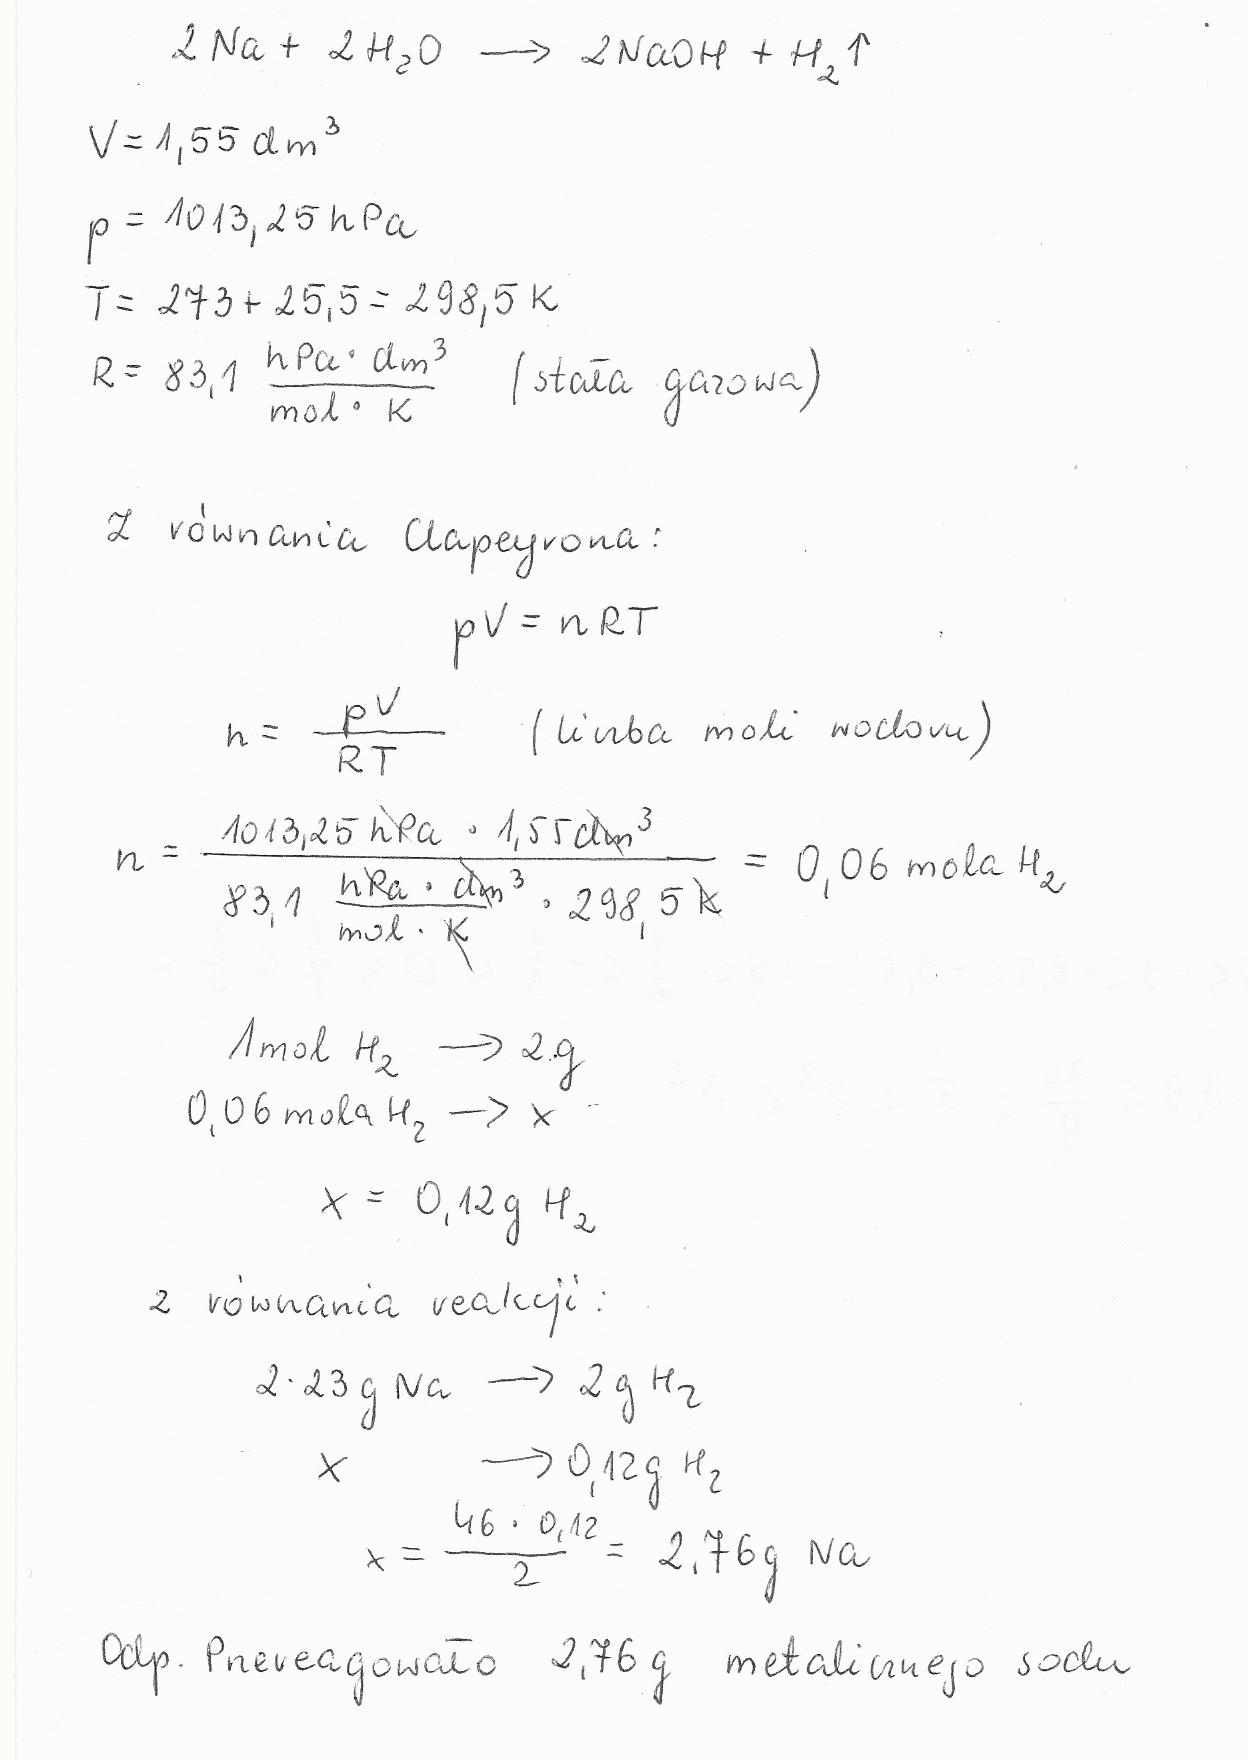 2Na + 2H₂O → 2NaOH + H₂↑
V = 1,55 dm³
p = 1013,25 hPa
T = 273 + 25,5 = 298,5 K
R = 83,1 hPa · dm³ / mol · K (stała gazowa)
Z równania Clapeyrona:
pV = nRT
n = pV / RT (liczba moli wodoru)
n = 1013,25 hPa · 1,55 dm³ / 83,1 hPa · dm³ / mol · K · 298,5 K = 0,06 mola H₂
1 mol H₂ → 2 g
0,06 mola H₂ → x
x = 0,12 g H₂
z równania reakcji:
2 · 23 g Na → 2 g H₂
x → 0,12 g H₂
x = 46 · 0,12 / 2 = 2,76 g Na
Odp. Przereagowało 2,76 g metalicznego sodu